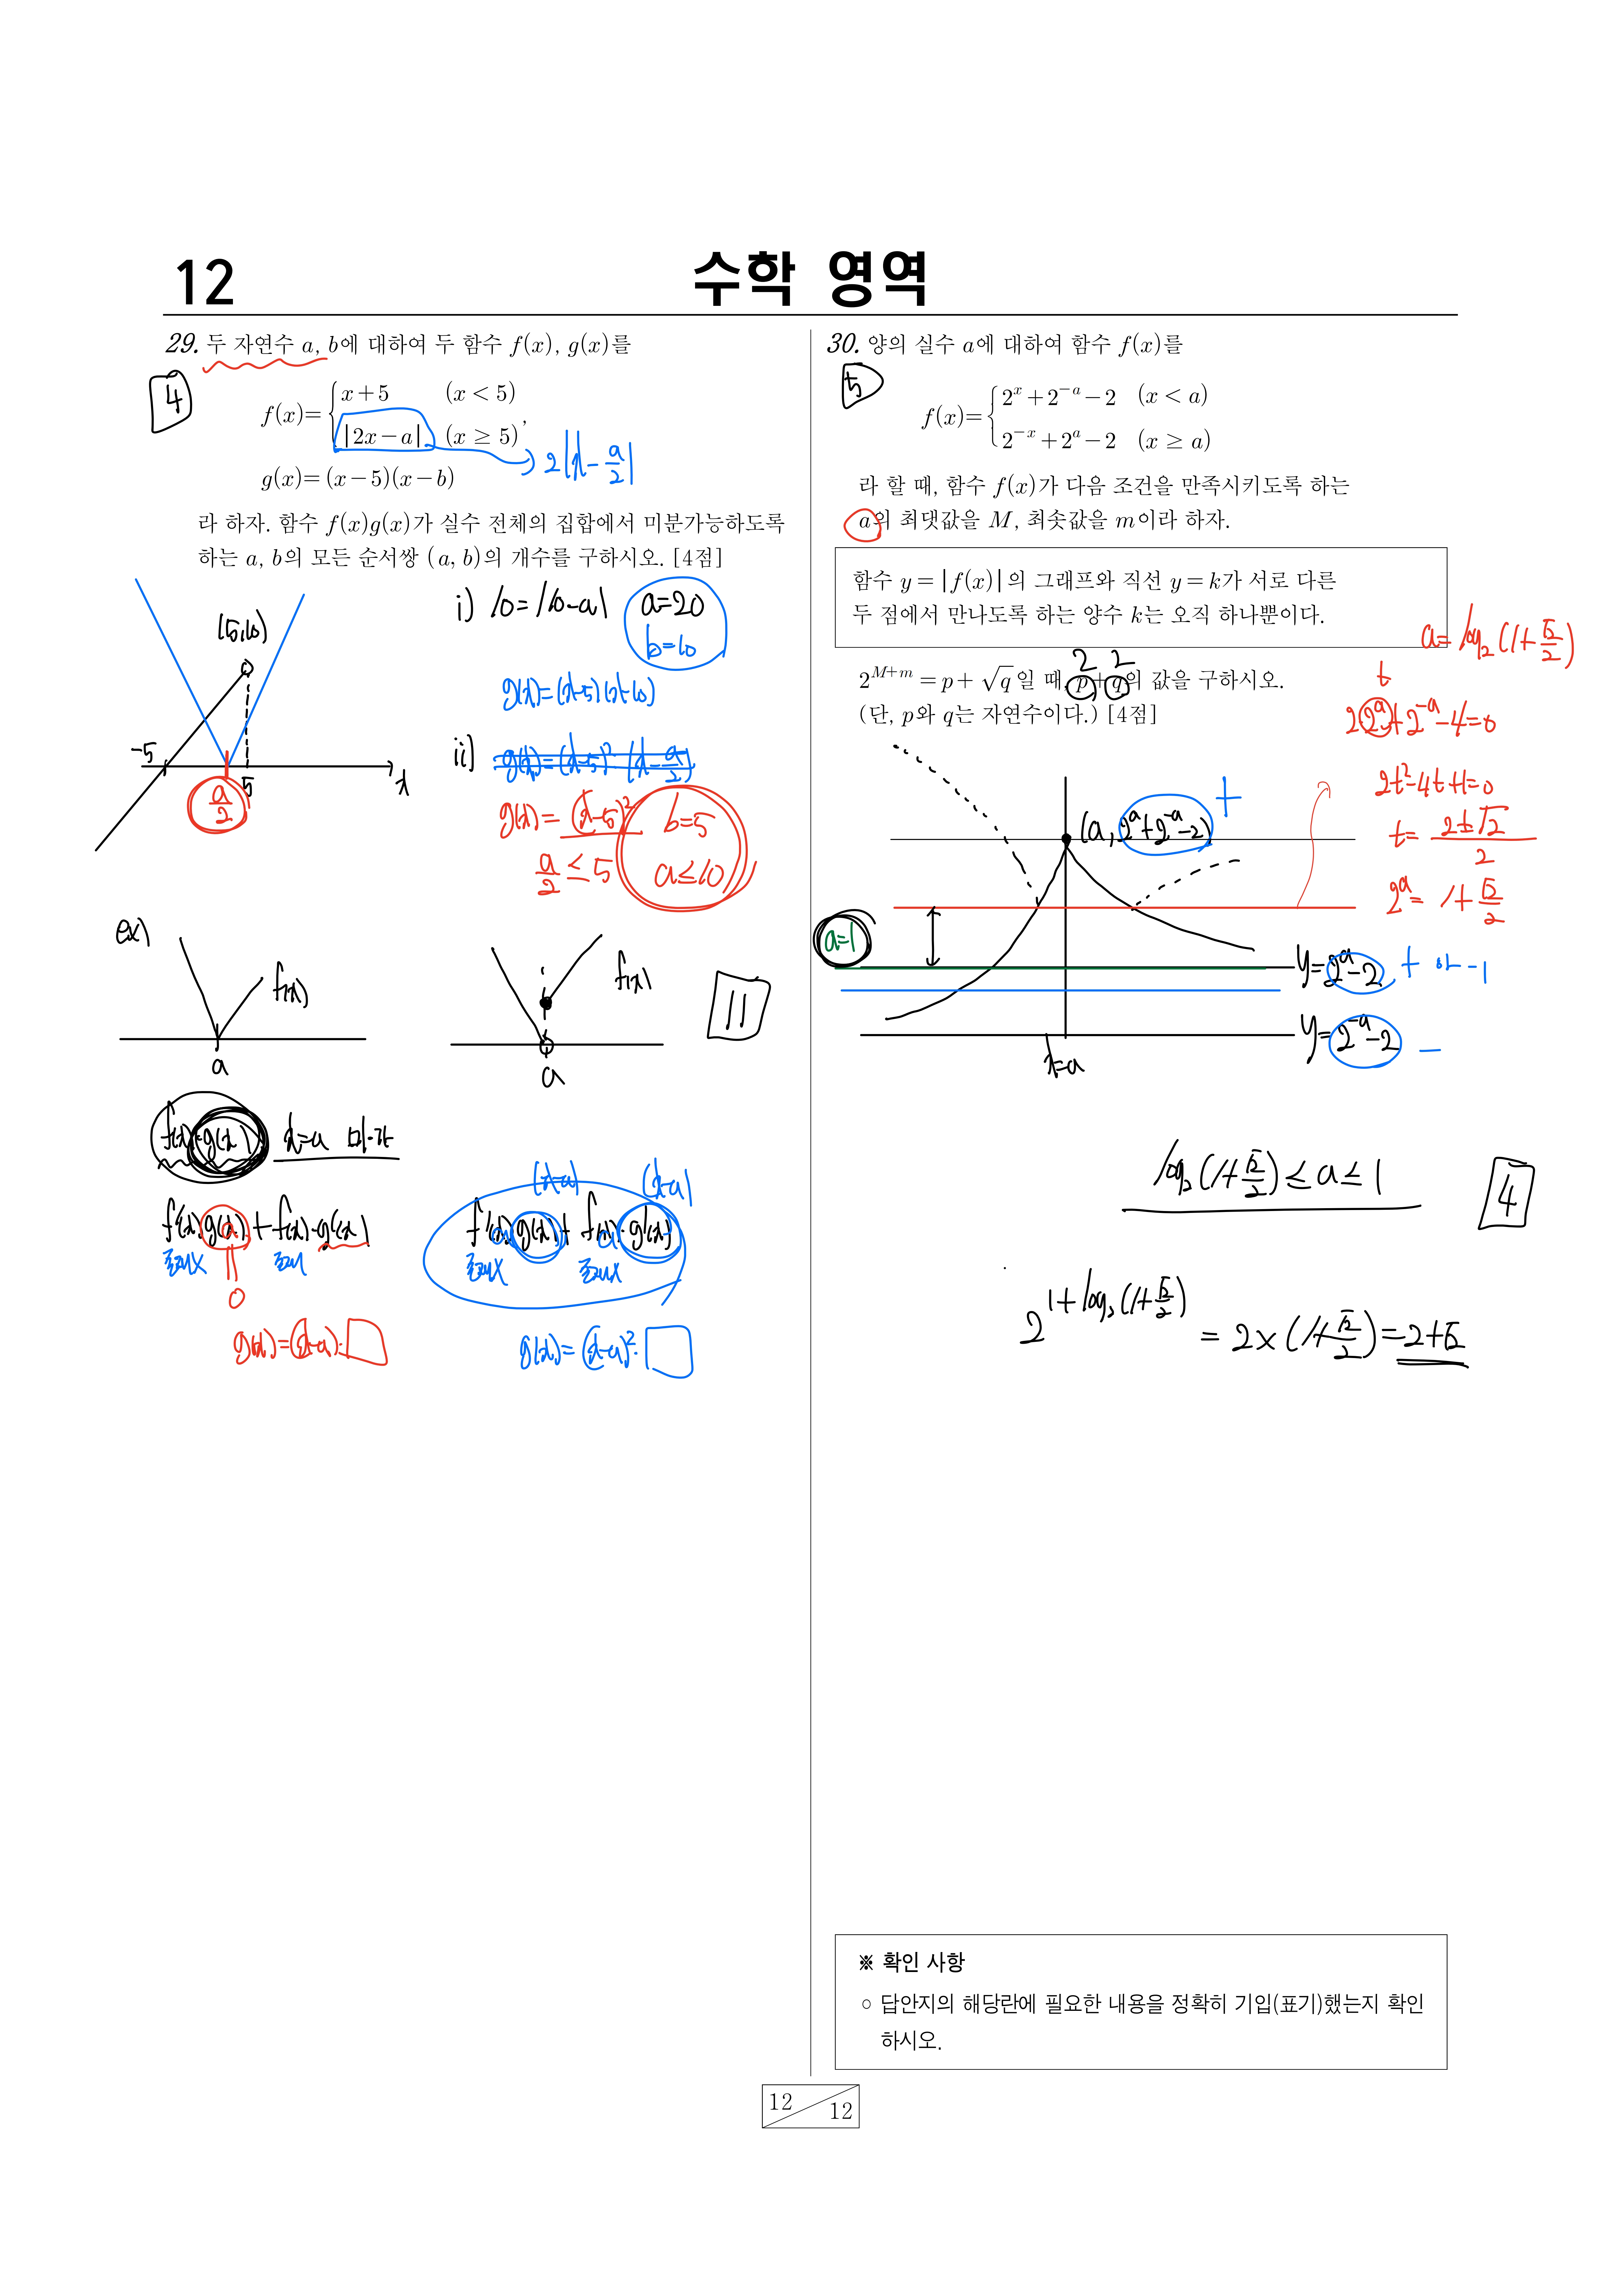 12
수학 영역
29. 두 자연수 a, b에 대하여 두 함수 f(x), g(x)를
4
f(x)= { x+5 (x < 5)
|2x-a| (x ≥ 5) ,
2|x-a/2|
g(x)=(x-5)(x-b)
라 하자. 함수 f(x)g(x)가 실수 전체의 집합에서 미분가능하도록
하는 a, b의 모든 순서쌍 (a, b)의 개수를 구하시오. [4점]
i) 10=|10-a| a=20
b=10
(5,10)
g(x)=(x-5)(x-10)
-5
5
x
a/2
ii) g(x)=(x-5)² (x-a/2)
g(x)=(x-5)² b=5
a/2 ≤ 5 a≤10
ex)
f(x)
a
f(x)
a
11
f(x)·g(x) x=a 미·가
f'(x)g(x)+f(x)·g'(x)
존재X 존재
0
g(x)=(x-a)·□
(x-a) (x-a)
f'(x)g(x)+f(x)·g'(x)
존재X 존재X
g(x)=(x-a)²·□
30. 양의 실수 a에 대하여 함수 f(x)를
5
f(x)= { 2^x+2^{-a}-2 (x < a)
2^{-x}+2^a-2 (x ≥ a)
라 할 때, 함수 f(x)가 다음 조건을 만족시키도록 하는
a의 최댓값을 M, 최솟값을 m이라 하자.
함수 y=|f(x)|의 그래프와 직선 y=k가 서로 다른
두 점에서 만나도록 하는 양수 k는 오직 하나뿐이다.
a=log₂(1+√2/2)
2 2
2^{M+m}=p+√q일 때, p+q의 값을 구하시오.
(단, p와 q는 자연수이다.) [4점]
t
2·2^a+2^{-a}-4=0
2t²-4t+1=0
t=(2±√2)/2
2^a=1+√2/2
(a, 2^a+2^{-a}-2) +
a=1
y=2^a-2 + or -1
y=2^{-a}-2 -
x=a
log₂(1+√2/2)≤a≤1
4
2^{1+log₂(1+√2/2)} = 2×(1+√2/2)=2+√2
※ 확인 사항
○ 답안지의 해당란에 필요한 내용을 정확히 기입(표기)했는지 확인
하시오.
12
12